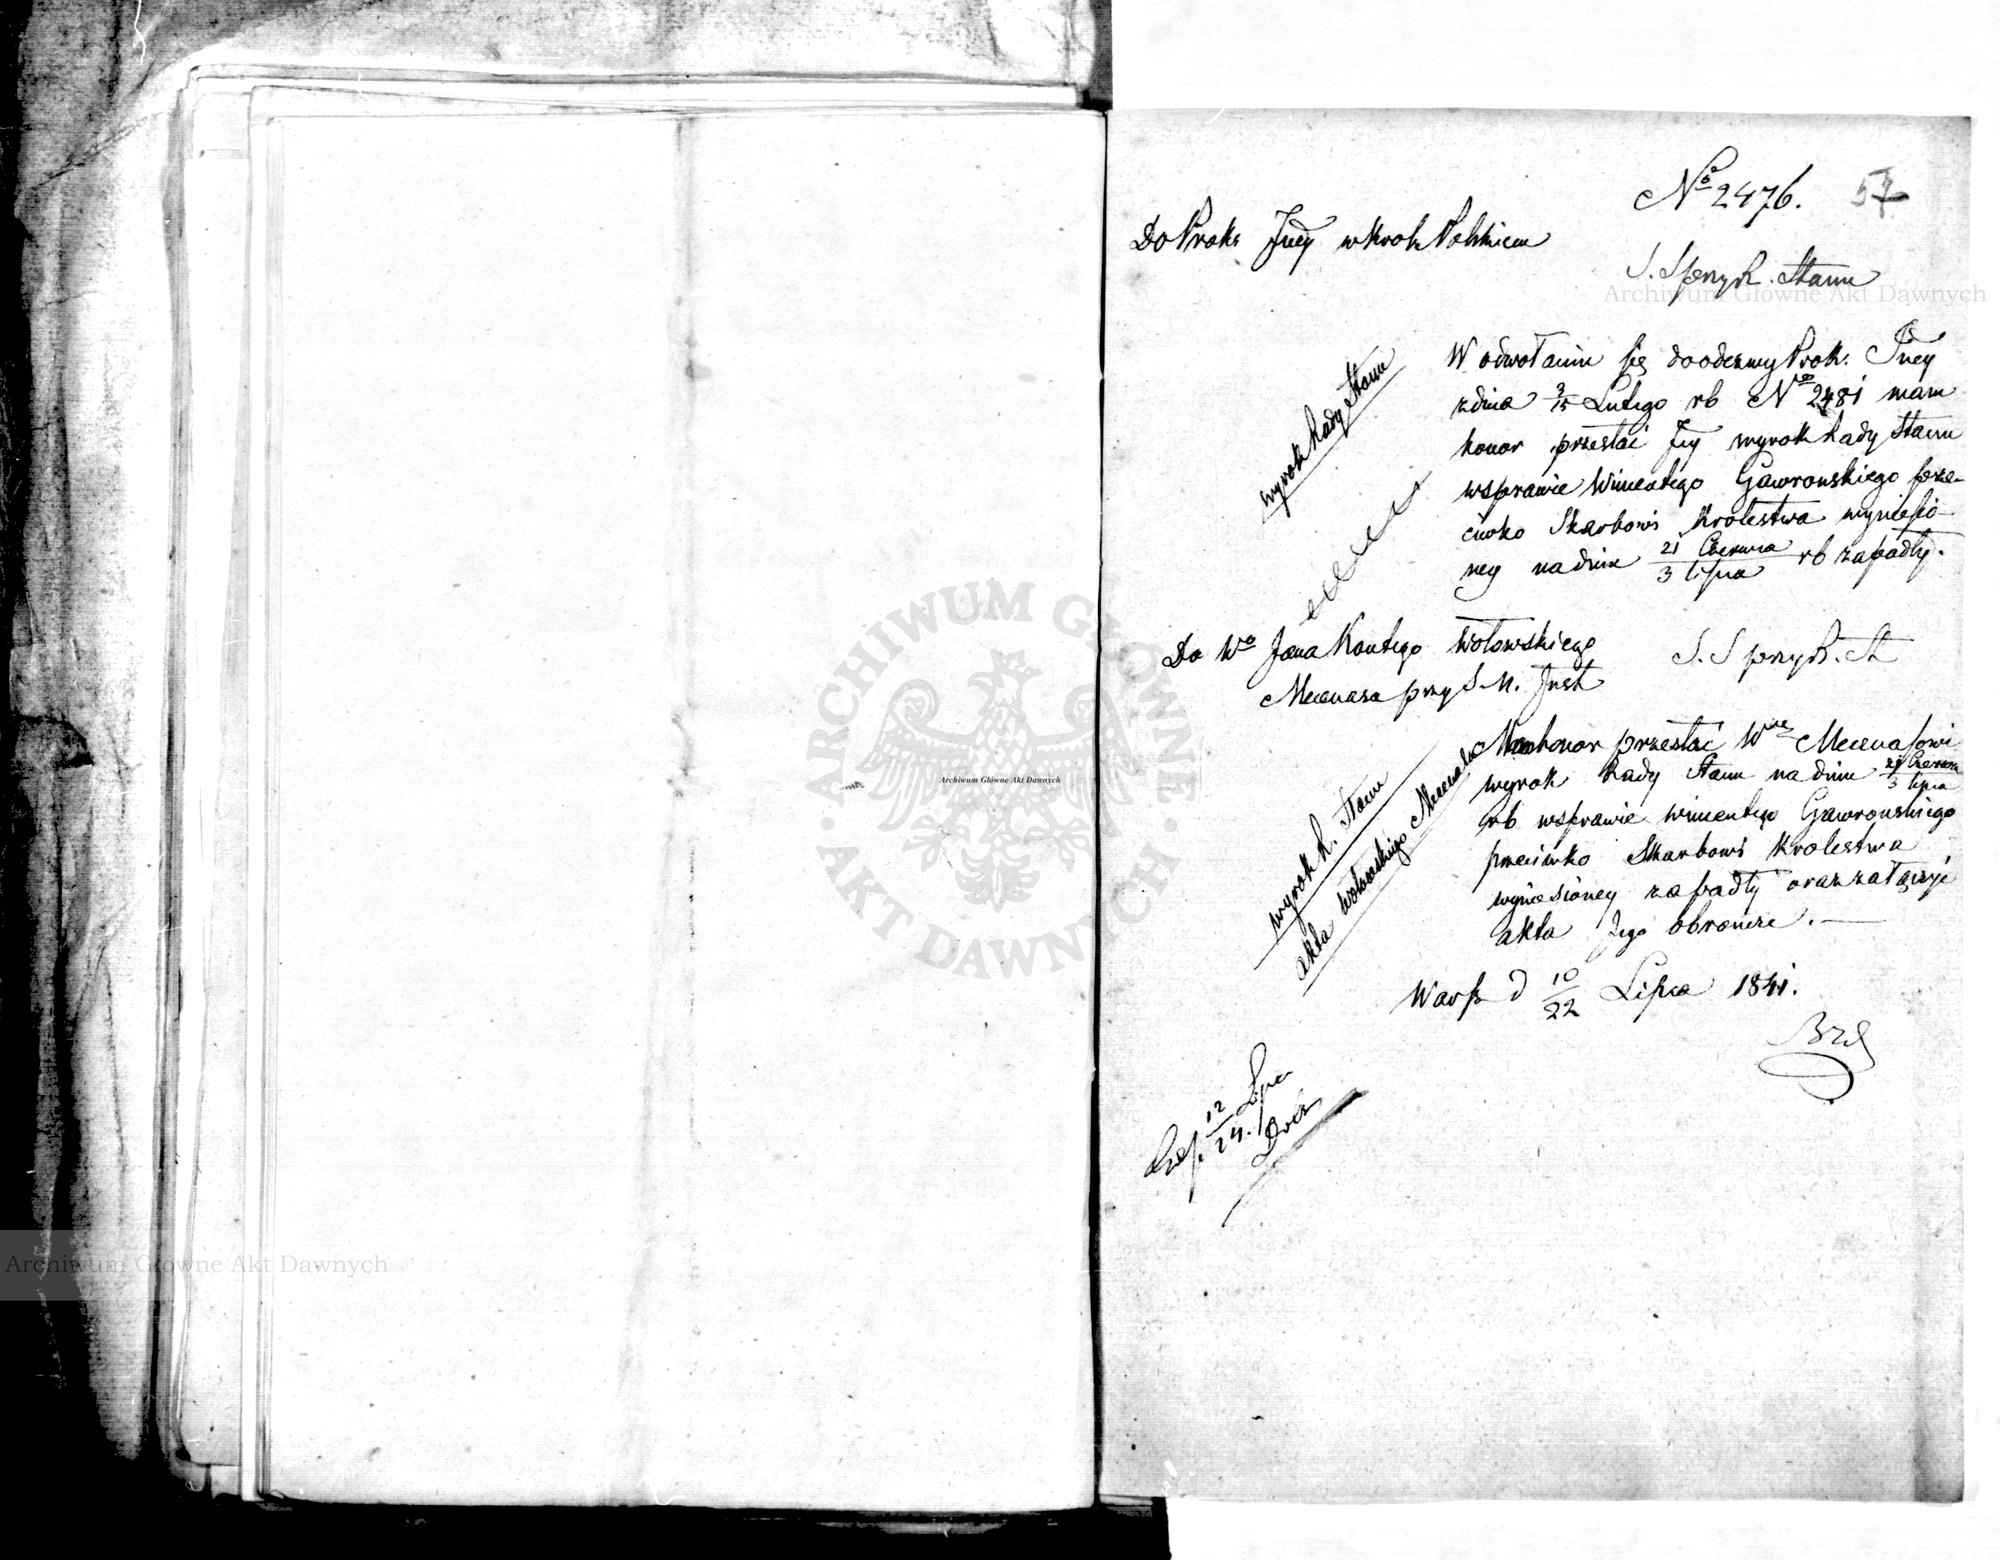 No 2476. 57
Do Prok: Jney w Krol: Polskiem
S. S przy R. Stanu
W odwołaniu się do odezwy Prok: Jney
z dnia 3/15 Lutego rb No 2481 mam
honor przesłać Jey wyrok Rady Stanu
w sprawie Wincentego Gawrońskiego prze-
ciwko Skarbowi Krolestwa wyniesio-
ney na dniu 21 Czerwca/3 Lipca rb zapadły.
wyrok Rady Stanu
Do Wo Jana Kantego Wołowskiego
Mecenasa przy S. N. Inst
S. S przy R. St
Mam honor przesłać Wmu Mecenasowi
wyrok Rady Stanu na dniu 21 Czerwca/3 Lipca
rb w sprawie Wincentego Gawrońskiego
przeciwko Skarbowi Krolestwa
wyniesioney zapadły oraz załączyć
akta Jego obrończe. —
wyrok R. Stanu
akta Wołowskiego Mecenasa
Warsz d 10/22 Lipca 1841.
12/24. Lipca
Archiwum Główne Akt Dawnych
Archiwum Główne Akt Dawnych
Archiwum Główne Akt Dawnych
ARCHIWUM GŁÓWNE · AKT DAWNYCH ·